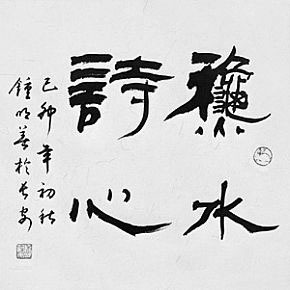 龝水
詩心
己卯年初秋
鍾明善於長安